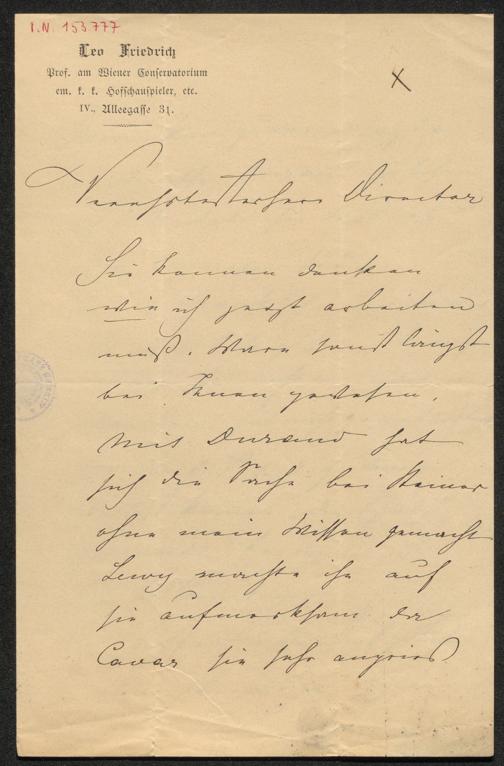 I.N. 153.777
Leo Friedrich
Prof. am Wiener Conservatorium
em. k. k. Hofschauspieler, etc.
IV., Alleegasse 31.
Verehrtester Herr Director
Sie können denken
wie ich jetzt arbeiten
muß. Wäre sonst längst
bei Ihnen gewesen.
Mit Durand hat
sich die Sache bei Steiner
ohne mein Wissen gemacht
Lewy machte ihn auf
sie aufmerksam da
sie sehr anpries